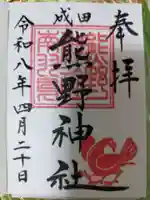 奉拝
成田
熊野神社
令和八年四月二十日